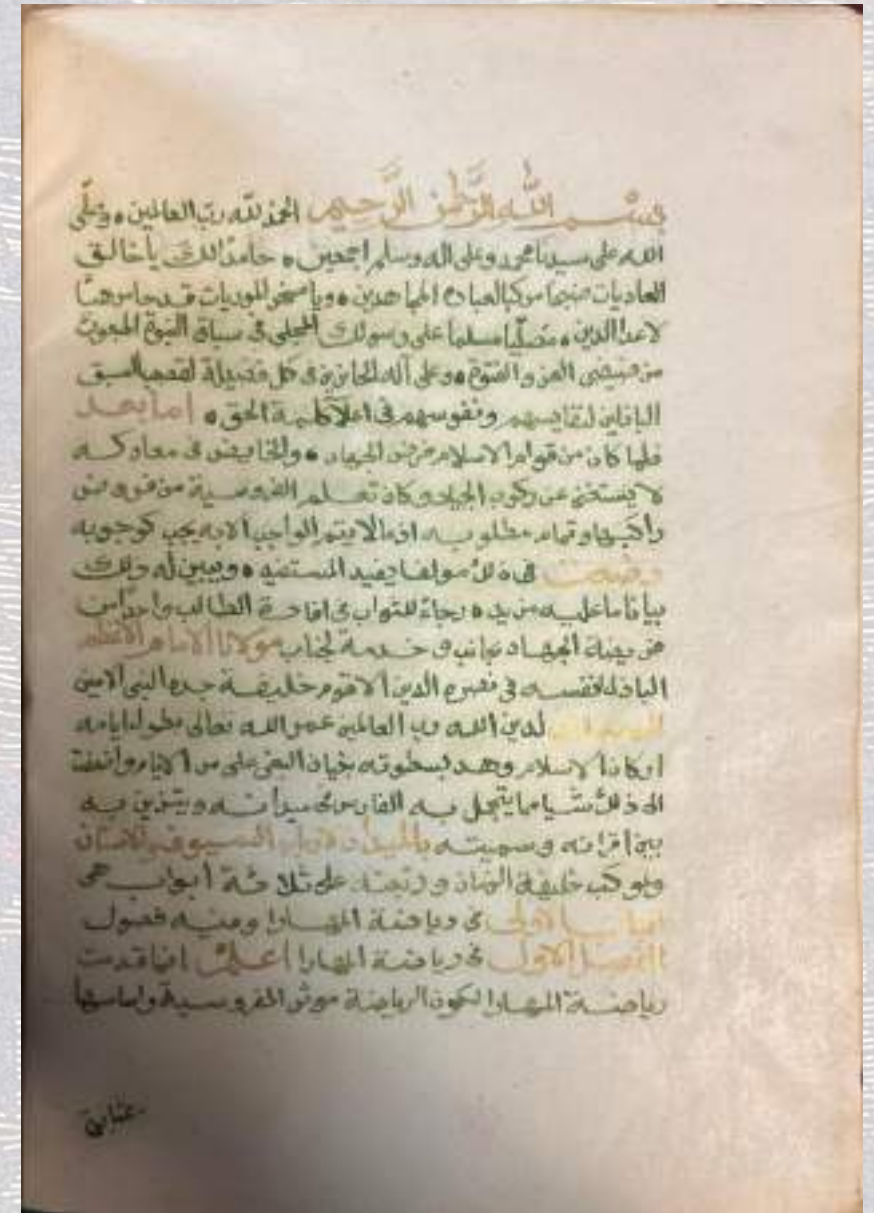 بسم الله الرحمن الرحيم الحمد لله رب العالمين وصلى
الله على سيدنا محمد وعلى اله وسلم اجمعين حامدا لك يا خالق
العاديات ضبحا مركبا لعباده المجاهدين ويا مسخر الموريات قدحا
لاعدا الدين مصليا مسلما على رسولك المجلى فى سباق النبوة المبعوث
العز والفتوة وعلى آله الحايزين فى كل فضيلة لقصب السبق
الباذلين لنفايسهم ونفوسهم فى اعلا كلمة الحق اما بعد
فلما كان من قوام الاسلام فرض الجهاد والخايض فى معاركه
لا يستغنى عن ركوب الجياد وكان تعلم الفروسية من فروض
راكبها وتمام مطلوبه اذ ما لا يتم الواجب الا به يجب كوجوبه
وضعت فى ذلك مولفا يفيد المستفيد ويبين له ذلك
بيانا ما عليه من يد رجاء للثواب فى افادة الطالب
الجهاد وخدمة لجناب مولانا الامام الاعظم
الباذل لنفسه فى نصرة الدين الاقوم خليفة جده النبى الامين
لدين الله رب العالمين عمر الله تعالى بطول ايامه
اركان الاسلام وهد بسطوته البغى على مر الايام واضفت
الى ذلك شيا مما يتجمل به الفارس فى ميدانه ويتزين به
بين اقرانه وسميته
ورتبته على ثلاثة أبواب هى
الباب الاول فى رياضة المهارا ومنيه فصول
الفصل الاول فى رياضة المهارا اعلم انما قدمت
رياضة المهارا لكون الرياضة الفروسية واساسها